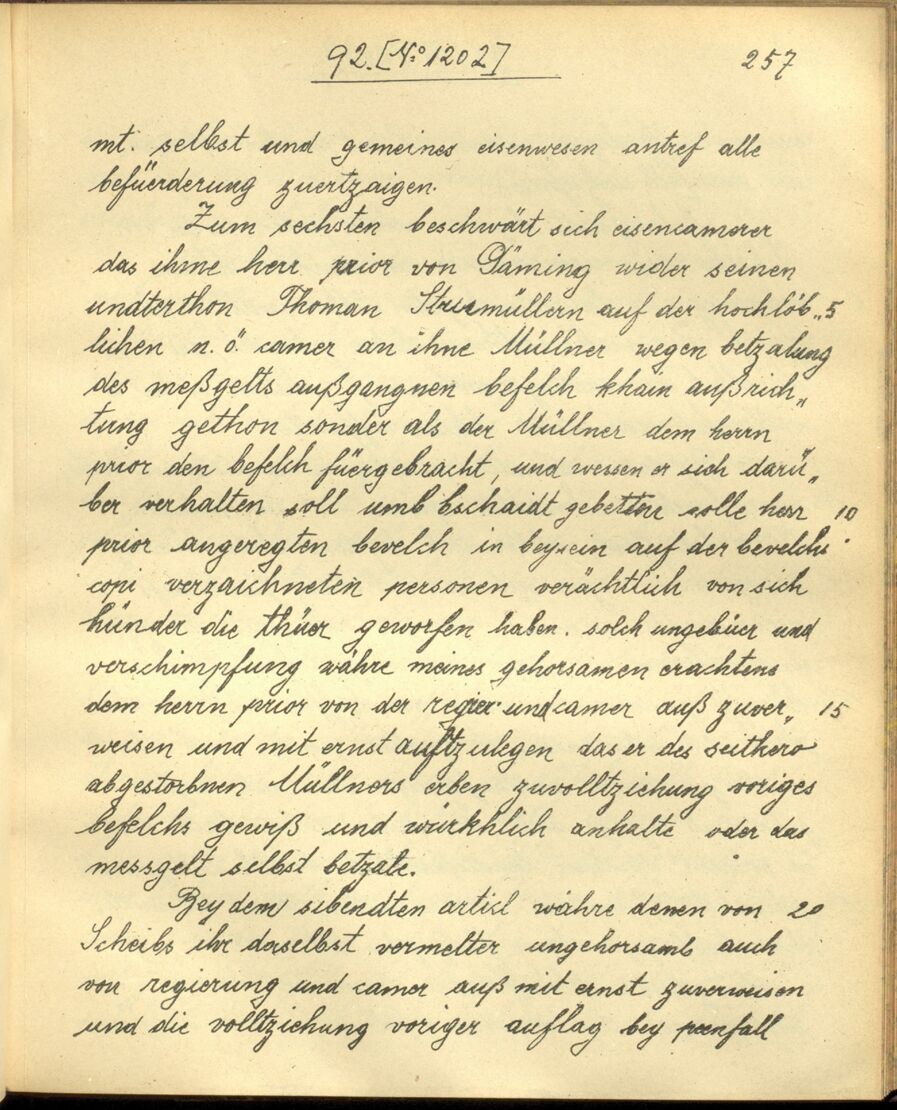 92. [No 1202] 257
mt. selbst und gemeines eisenwesen antref alle
befüerderung zuertzaigen.
Zum sechsten beschwärt sich eisencamerer
das ihme herr prior von Gäming wider seinen
undterthon Thoman müllern auf der hochlöb„ 5
lichen n. ö. camer an ihne Müllner wegen betzalung
des meßgelts außgangnen befelch khain außrich„
tung gethon sonder als der Müllner dem herrn
prior den befelch füergebracht, und wessen er sich darü„
ber verhalten soll umb bschaidt gebetten solle herr 10
prior angeregten bevelch in beysein auf der bevelchs
copi verzaichneten personen verächtlich von sich
hünder die thüer geworfen haben. solch ungebüer und
verschimpfung währe meines gehorsamen erachtens
dem herrn prior von der regier. und camer auß zuver„ 15
weisen und mit ernst auftzulegen das er des seithero
abgestorbnen Müllners erben zuvolltziehung voriges
befelchs gewiß und würkhlich anhalte oder das
messgelt selbst betzale.
Bey dem sibendten articl währe denen von 20
Scheibs ihr daselbst vermelter ungehorsamb auch
von regierung und camer auß mit ernst zuverweisen
und die volltziehung voriger auflag bey peenfall